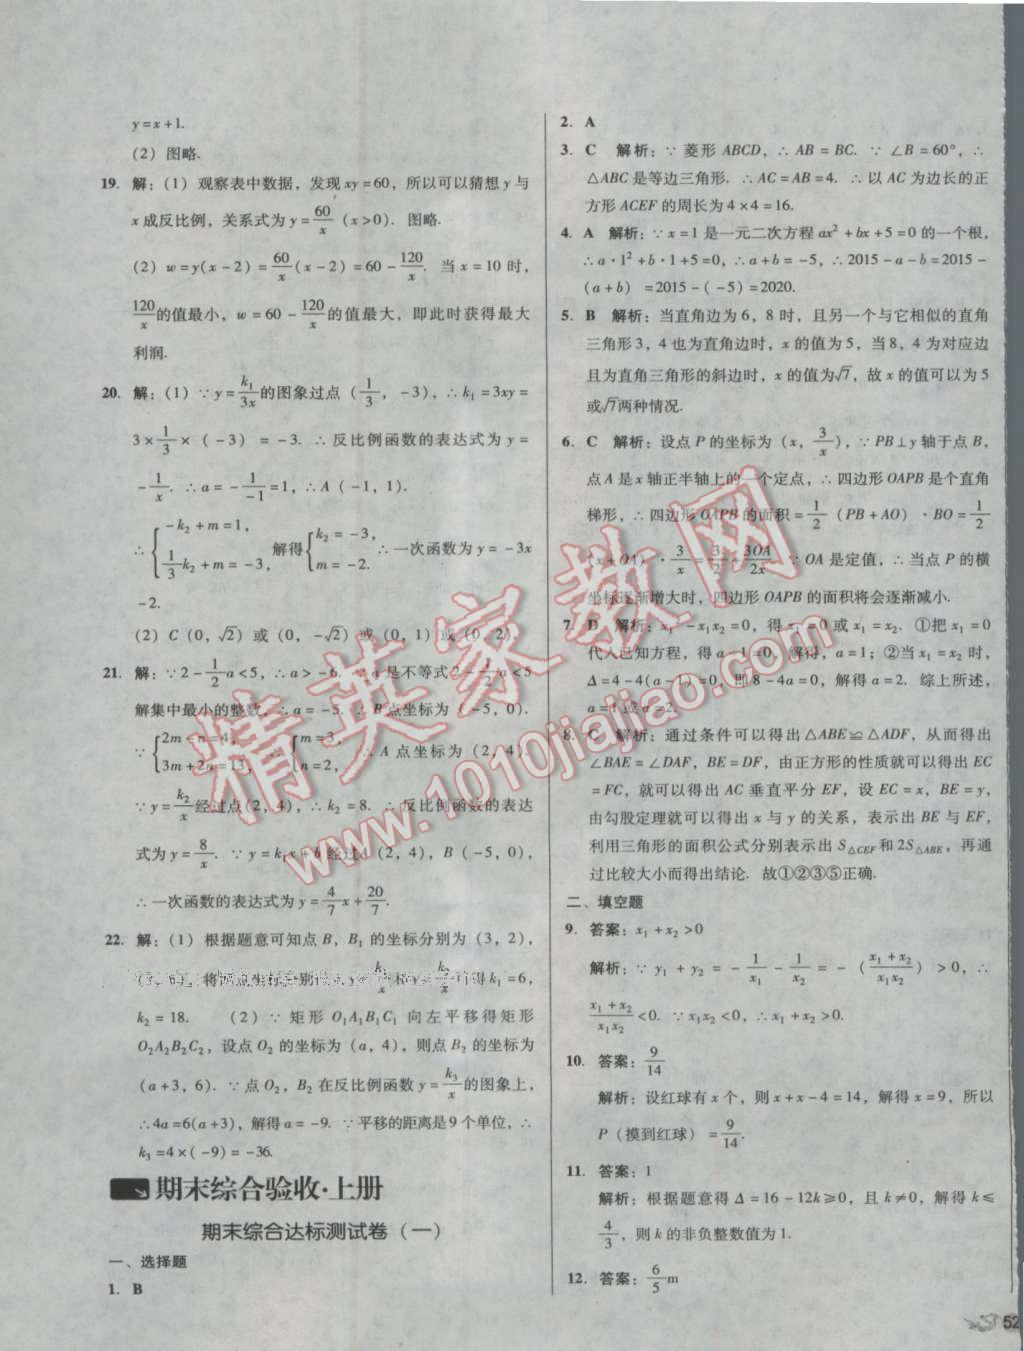 y=x+1.
(2) 图略.
19. 解：(1) 观察表中数据，发现 xy=60，所以可以猜想 y 与
x 成反比例，关系式为 y=60/x (x>0). 图略.
(2) w=y(x-2)=60/x(x-2)=60-120/x. 当 x=10 时，
120/x的值最小，w=60-120/x的值最大，即此时获得最大
利润.
20. 解：(1) ∵y=k₁/3x的图象过点 (1/3, -3)，∴k₁=3xy=
3×1/3×(-3)=-3. ∴反比例函数的表达式为 y=
-1/x. ∴a=-1/-1=1，∴A (-1, 1).
∴ { -k₂+m=1, 1/3k₂+m=-3, 解得 { k₂=-3, m=-2. ∴一次函数为 y=-3x
-2.
(2) C (0, √2) 或 (0, -√2) 或 (0, 1) 或 (0, 2).
21. 解：∵2-1/2a<5，∴a>-6. ∵a 是不等式 2-1/2a<5
解集中最小的整数，∴a=-5. ∴B 点坐标为 (-5, 0).
∵ { 2m-n=4, 3m+2n=13, ∴ { m=3, n=2. ∴A 点坐标为 (2, 4).
∵y=k₂/x经过点 (2, 4)，∴k₂=8. ∴反比例函数的表达
式为 y=8/x. ∵y=k₁x+b 经过 (2, 4)，B (-5, 0)，
∴一次函数的表达式为 y=4/7x+20/7.
22. 解：(1) 根据题意可知点 B，B₁ 的坐标分别为 (3, 2)，
将两点坐标分别代入 y=k₁/x和 y=k₂/x，得 k₁=6，
k₂=18. (2) ∵矩形 O₁A₁B₁C₁ 向左平移得矩形
O₂A₂B₂C₂，设点 O₂ 的坐标为 (a, 4)，则点 B₂ 的坐标为
(a+3, 6). ∵点 O₂，B₂ 在反比例函数 y=k₃/x的图象上，
∴4a=6(a+3)，解得 a=-9. ∵平移的距离是 9 个单位，∴
k₃=4×(-9)=-36.
期末综合验收·上册
期末综合达标测试卷（一）
一、选择题
1. B
2. A
3. C 解析：∵菱形 ABCD，∴AB=BC. ∵∠B=60°，∴
△ABC 是等边三角形. ∴AC=AB=4. ∴以 AC 为边长的正
方形 ACEF 的周长为 4×4=16.
4. A 解析：∵x=1 是一元二次方程 ax²+bx+5=0 的一个根，
∴a·1²+b·1+5=0，∴a+b=-5，∴2015-a-b=2015-
(a+b)=2015-(-5)=2020.
5. B 解析：当直角边为 6，8 时，且另一个与它相似的直角
三角形 3，4 也为直角边时，x 的值为 5，当 8，4 为对应边
且为直角三角形的斜边时，x 的值为√7，故 x 的值可以为 5
或√7两种情况.
6. C 解析：设点 P 的坐标为 (x, 3/x)，∵PB⊥y 轴于点 B，
点 A 是 x 轴正半轴上的一个定点，∴四边形 OAPB 是个直角
梯形，∴四边形 OAPB 的面积=1/2 (PB+AO)·BO=1/2
(x+OA)·3/x=3/2+3OA/2x. ∵OA 是定值，∴当点 P 的横
坐标逐渐增大时，四边形 OAPB 的面积将会逐渐减小.
7. D 解析：x₁²-x₁x₂=0，得 x₁=0 或 x₁=x₂. ①把 x₁=0
代入已知方程，得 a-1=0. 解得，a=1；②当 x₁=x₂ 时，
Δ=4-4(a-1)=0，即 8-4a=0，解得 a=2. 综上所述，
a=1 或 a=2.
8. C 解析：通过条件可以得出△ABE≌△ADF，从而得出
∠BAE=∠DAF，BE=DF，由正方形的性质就可以得出 EC
=FC，就可以得出 AC 垂直平分 EF，设 EC=x，BE=y，
由勾股定理就可以得出 x 与 y 的关系，表示出 BE 与 EF，
利用三角形的面积公式分别表示出 S△CEF 和2S△ABE，再通
过比较大小而得出结论. 故①②③⑤正确.
二、填空题
9. 答案：x₁+x₂>0
解析：∵y₁+y₂=-1/x₁-1/x₂=-(x₁+x₂/x₁x₂)>0，∴
x₁+x₂/x₁x₂<0. ∵x₁x₂<0，∴x₁+x₂>0.
10. 答案：9/14
解析：设红球有 x 个，则 x+x-4=14，解得 x=9，所以
P（摸到红球）=9/14.
11. 答案：1
解析：根据题意得 Δ=16-12k≥0，且 k≠0，解得 k≤
4/3，则 k 的非负整数值为 1.
12. 答案：6/5m
精英家教网
www.1010jiajiao.com
52